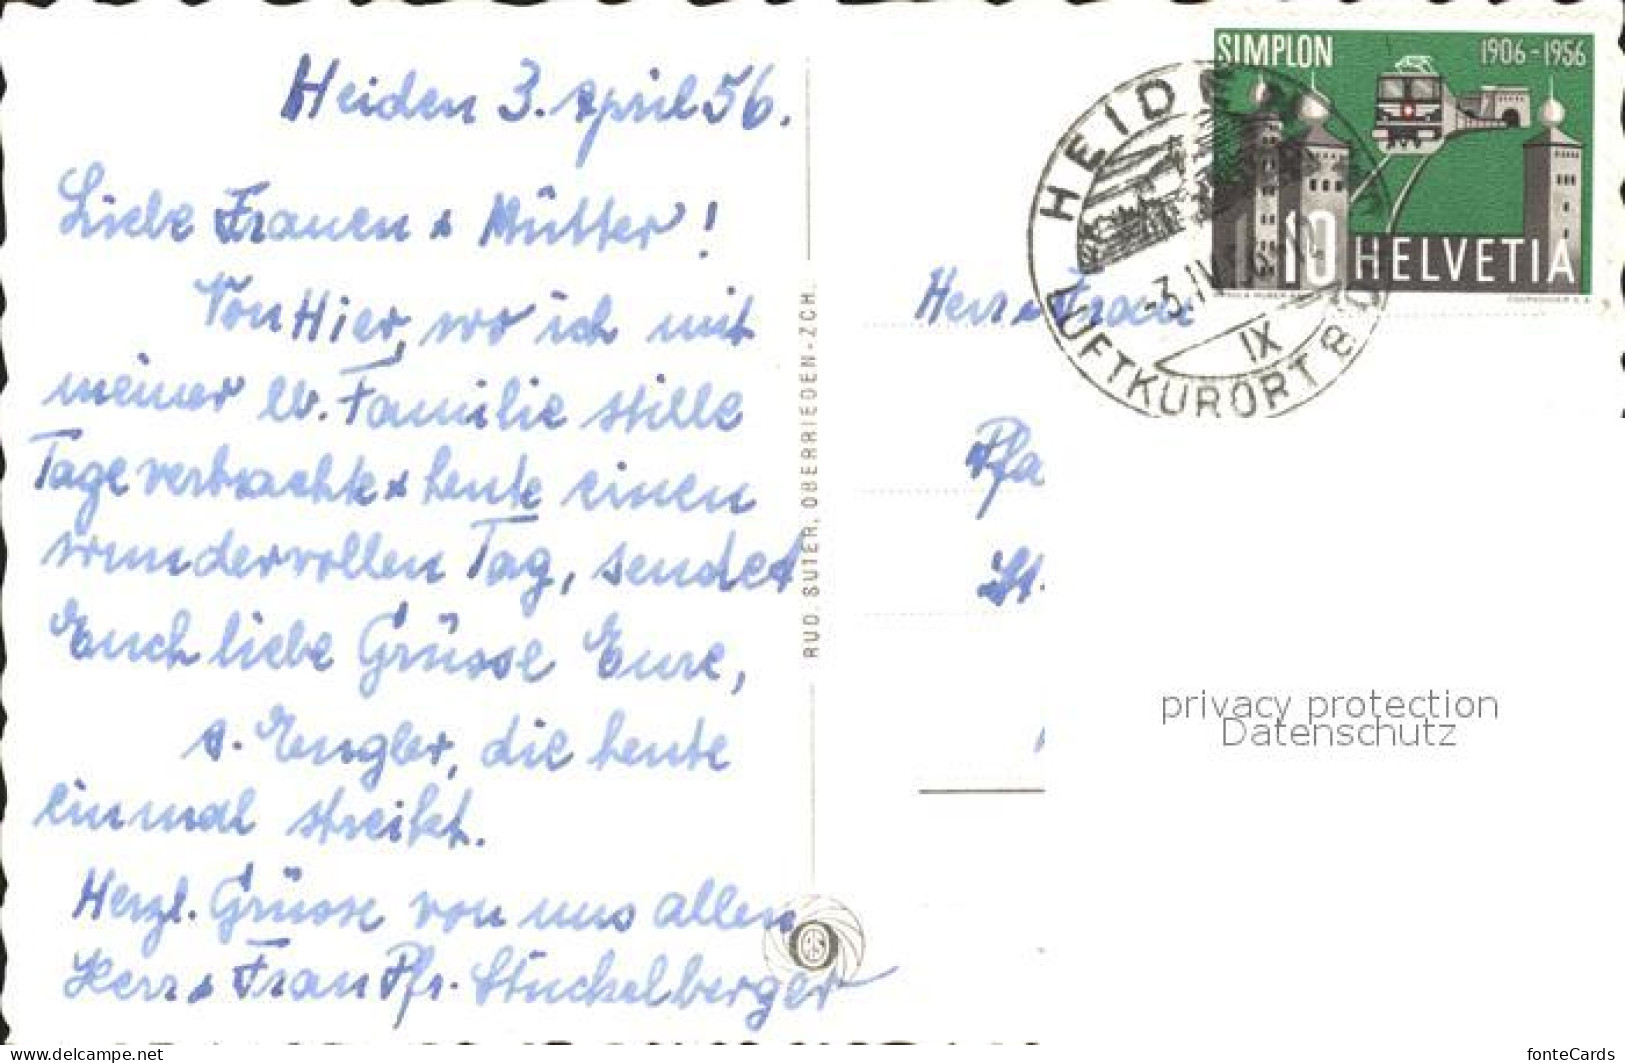 Heiden 3. April 56.
Liebe Frauen & Mütter!
Von Hier, wo ich mit
meiner lb. Familie stille
Tage verbrachte & heute einen
wundervollen Tag, sendet
Euch liebe Grüsse Eure,
A. Engler, die heute
einmal streikt.
Herzl. Grüsse von uns allen
Herr & Frau Pfr. Stückelberger
RUD. SUTER, OBERRIEDEN-ZCH.
SIMPLON 1906-1956
10 HELVETIA
HEIDEN
-3.IV.
IX
LUFTKURORT 8
Herr & Frau
Pfa
St.
privacy protection
Datenschutz
www.delcampe.net
fonteCards